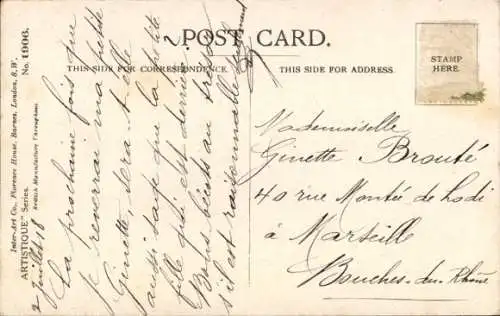 POST CARD.
THIS SIDE FOR CORRESPONDENCE.
THIS SIDE FOR ADDRESS.
STAMP
HERE.
Inter-Art Co., Florence House, Barnes, London, S.W.
"ARTISTIQUE" Series. No. 1906.
British Manufacture Throughout.
2 juillet 18
La prochaine fois que
je reverrai ma petite
Ginette, sera-t-elle
aussi sage que la petite
fille qui est derrière ?
Bons baisers au trésor
s'il est raisonnable
Mademoiselle
Ginette Brouté
40 rue Montée de Lodi
à Marseille
Bouches-du-Rhône